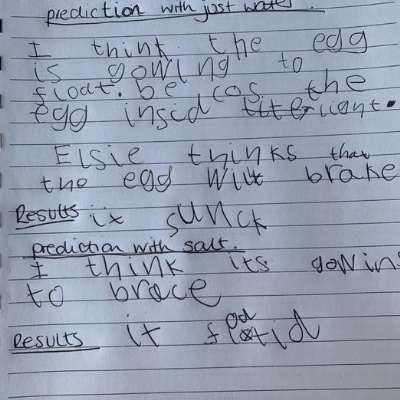 prediction with just water.
I think the egg
is gowing to
float. be cos the
egg insid
Elsie thinks that
the egg will brake
Results it sunck
prediction with salt.
I think its gowin
to brace
Results it flotid